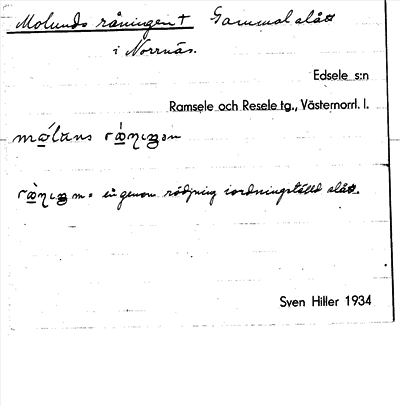 Molunds råningen † Gammal slått
i Norrnäs.
Edsele s:n
Ramsele och Resele tg., Västernorrl. l.
m. = en genom rödjning iordningställd slått.
Sven Hiller 1934